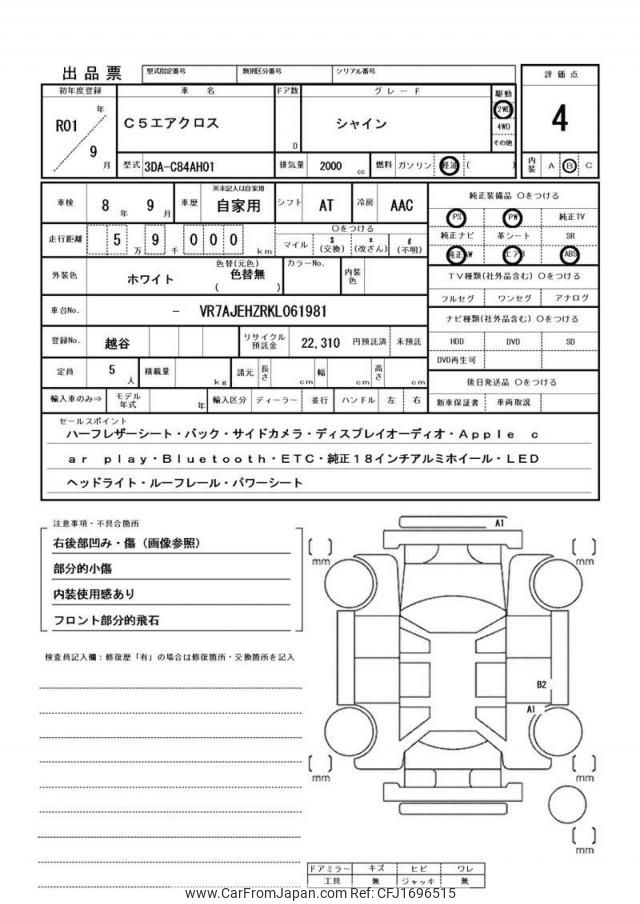 出品票 型式指定番号 類別区分番号 シリアル番号
評価点
4
初年度登録 車名 ドア数 グレード 駆動
R01 年 9 月
C5エアクロス D シャイン
2WD
4WD
その他
型式 3DA-C84AH01 排気量 2000 cc 燃料 ガソリン 軽油 ( ) 内装 A B C
車検 8 年 9 月 車歴 ※未記入は自家用 自家用 シフト AT 冷房 AAC
純正装備品 ○をつける
PS PW 純正TV
純正ナビ 革シート SR
純正AW エアB ABS
走行距離 5 万 9 千 0 0 0 km ○をつける マイル $ (交換) * (改ざん) # (不明)
外装色 ホワイト 色替(元色) 色替無 ( ) カラーNo. 内装色
TV種類(社外品含む) ○をつける
フルセグ ワンセグ アナログ
車台No. - VR7AJEHZRKL061981
ナビ種類(社外品含む) ○をつける
HDD DVD SD
DVD再生可
登録No. 越谷 リサイクル預託金 22,310 円預託済 未預託
定員 5 人 積載量 kg 諸元 長さ cm 幅 cm 高さ cm
後日発送品 ○をつける
新車保証書 車両取説
輸入車のみ⇒ モデル年式 年 輸入区分 ディーラー 並行 ハンドル 左 右
セールスポイント
ハーフレザーシート・バック・サイドカメラ・ディスプレイオーディオ・Apple c
ar play・Bluetooth・ETC・純正18インチアルミホイール・LED
ヘッドライト・ルーフレール・パワーシート
注意事項・不具合箇所
右後部凹み・傷(画像参照)
部分的小傷
内装使用感あり
フロント部分的飛石
検査員記入欄:修復歴「有」の場合は修復箇所・交換箇所を記入
A1
[ ] mm
[ ] mm
B2
A1
[ ] mm
[ ] mm
[ ] mm
ドアミラー キズ ヒビ ワレ
工具 無 ジャッキ 無
www.CarFromJapan.com CFJ1696515